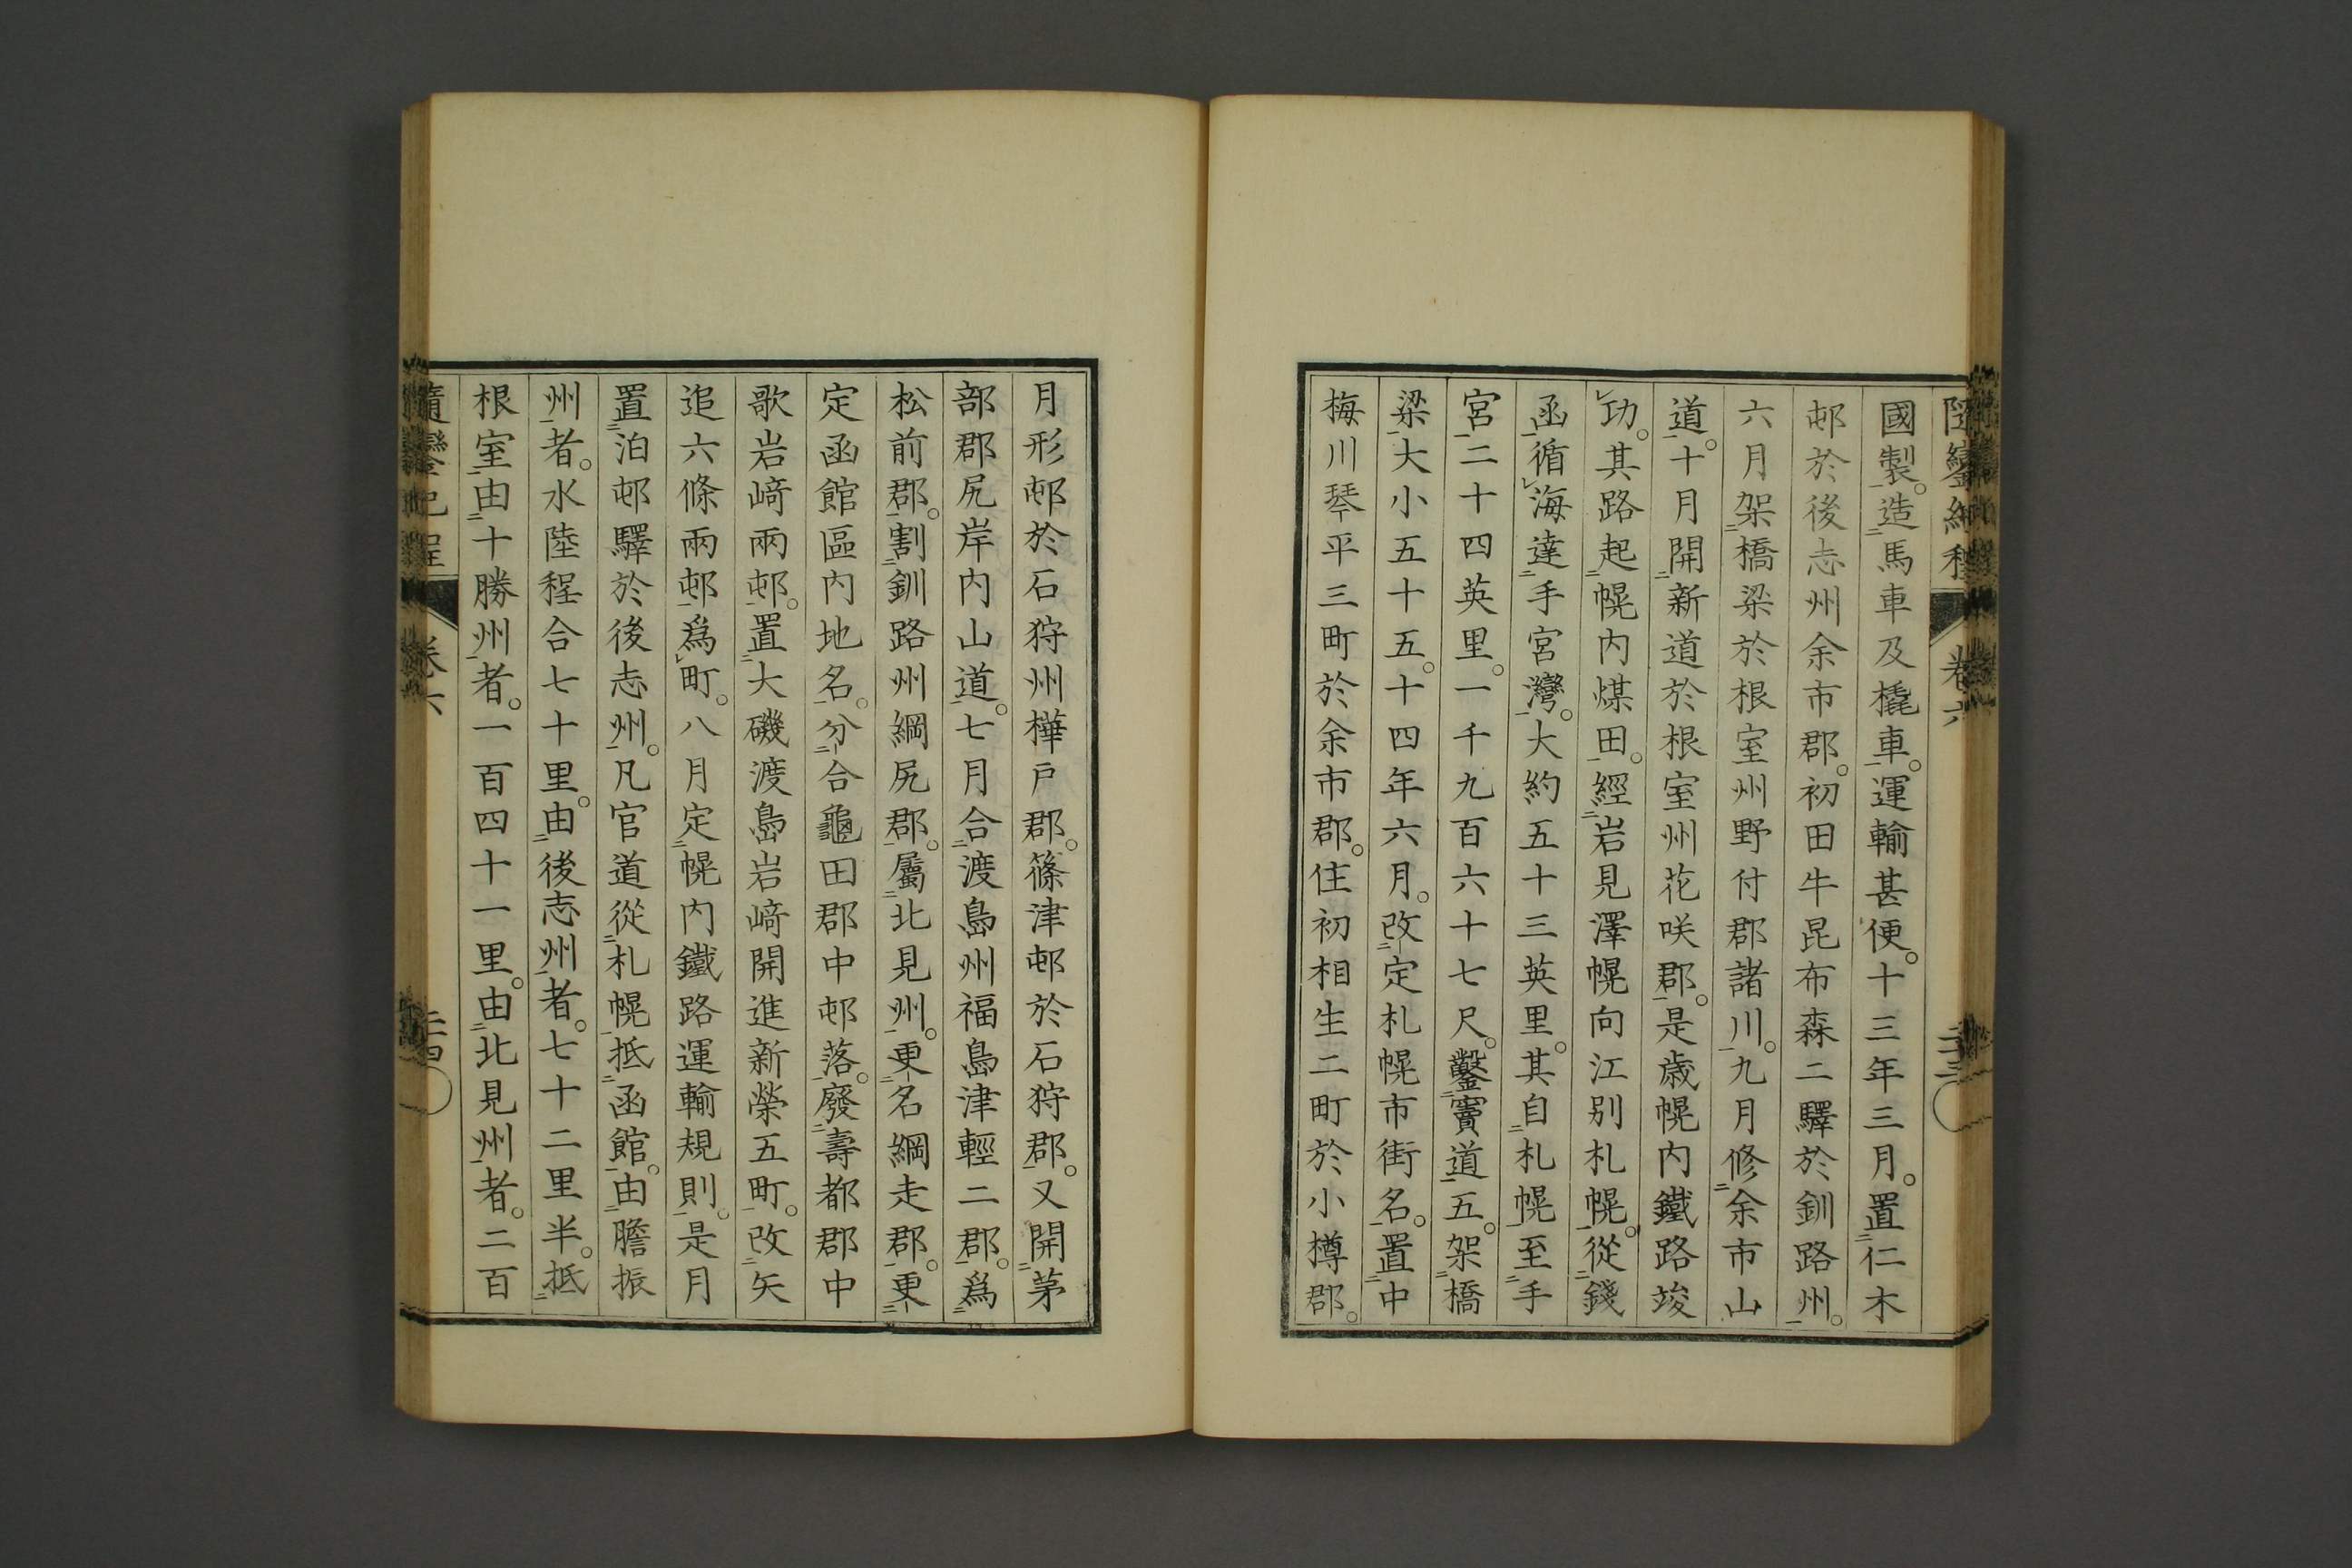 國製。造馬車及橇車。運輸甚便。十三年三月。置仁木
邨於後志州余市郡。初田牛昆布森二驛於釧路州。
六月架橋梁於根室州野付郡諸川。九月修余市山
道。十月開新道於根室州花咲郡。是歲幌内鐵路竣
功。其路起幌内煤田。經岩見澤幌向江别札幌。從錢
函循海達手宮灣。大約五十三英里。其自札幌至手
宮二十四英里。一千九百六十七尺。鑿竇道五。架橋
梁大小五十五。十四年六月。改定札幌市街名。置中
梅川琴平三町於余市郡。住初相生二町於小樽郡。
月形邨於石狩州樺戶郡。篠津邨於石狩郡。又開茅
部郡尻岸内山道。七月合渡島州福島津輕二郡。爲
松前郡。割釧路州綱尻郡。屬北見州。更名綱走郡。更
定函館區内地名。分合龜田郡中邨落。廢壽都郡中
歌岩﨑兩邨。置大磯渡島岩﨑開進新榮五町。改矢
追六條兩邨爲町。八月定幌内鐵路運輸規則。是月
置泊邨驛於後志州。凡官道從札幌抵函館。由膽振
州者。水陸程合七十里。由後志州者。七十二里半。抵
根室由十勝州者。一百四十一里。由北見州者。二百
隨鑾紀程 卷六 二十四